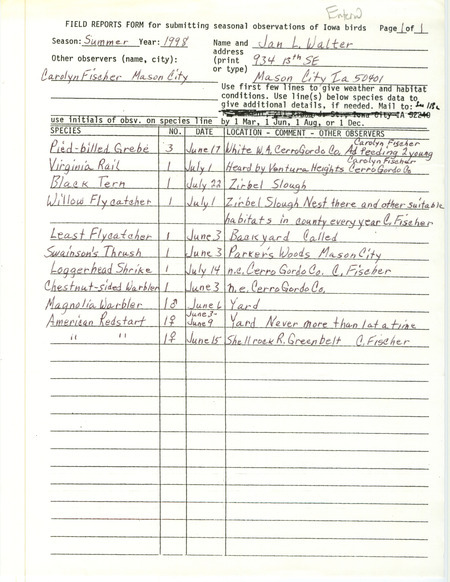 Entered
FIELD REPORTS FORM for submitting seasonal observations of Iowa birds Page 1 of 1
Season: Summer Year: 1998 Name and Jan L. Walter
address
Other observers (name, city): (print 934 15th SE
or type)
Carolyn Fischer Mason City Mason City Ia 50401
Use first few lines to give weather and habitat
conditions. Use line(s) below species data to
give additional details, if needed. Mail to:
Iowa City IA 52240
use initials of obsv. on species line by 1 Mar, 1 Jun, 1 Aug, or 1 Dec.
SPECIES NO. DATE LOCATION - COMMENT - OTHER OBSERVERS
Carolyn Fischer
Pied-billed Grebe 3 June 17 White W.A. Cerro Gordo Co. Ad feeding 2 young
Carolyn Fischer
Virginia Rail 1 July 1 Heard by Ventura Heights Cerro Gordo Co
Black Tern 1 July 22 Zirbel Slough
Willow Flycatcher 1 July 1 Zirbel Slough Nest there and other suitable
habitats in county every year C. Fischer
Least Flycatcher 1 June 3 Backyard Called
Swainson's Thrush 1 June 3 Parker's Woods Mason City
Loggerhead Shrike 1 July 14 n.c. Cerro Gordo Co. C. Fischer
Chestnut-sided Warbler 1 June 3 n.e. Cerro Gordo Co.
Magnolia Warbler 1♂ June 6 Yard
American Redstart 1♀ June 3-June 9 Yard Never more than 1 at a time
" " 1♀ June 15 Shellrock R. Greenbelt C. Fischer